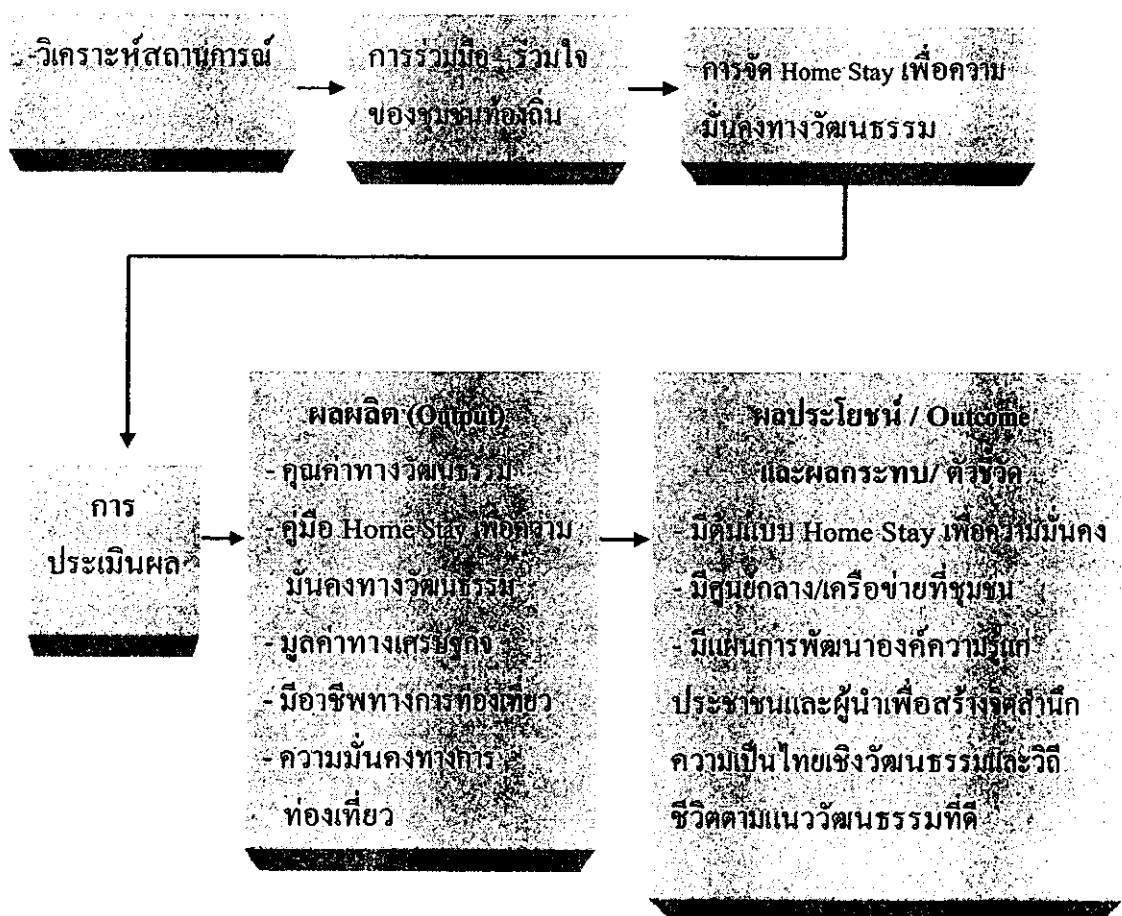 -วิเคราะห์สถานการณ์
การร่วมมือ - ร่วมใจ
ของชุมชนท้องถิ่น
การจัด Home Stay เพื่อความ
มั่นคงทางวัฒนธรรม
การ
ประเมินผล
ผลผลิต (Output)
- คุณค่าทางวัฒนธรรม
- คู่มือ Home Stay เพื่อความ
มั่นคงทางวัฒนธรรม
- มูลค่าทางเศรษฐกิจ
- มีอาชีพทางการท่องเที่ยว
- ความมั่นคงทางการ
ท่องเที่ยว
ผลประโยชน์ / Outcome
และผลกระทบ/ ตัวชี้วัด
- มีต้นแบบ Home Stay เพื่อความมั่นคง
- มีศูนย์กลาง/เครือข่ายที่ชุมชน
- มีแผนการพัฒนาองค์ความรู้แก่
ประชาชนและผู้นำเพื่อสร้างจิตสำนึก
ความเป็นไทยเชิงวัฒนธรรมและวิถี
ชีวิตตามแนววัฒนธรรมที่ดี